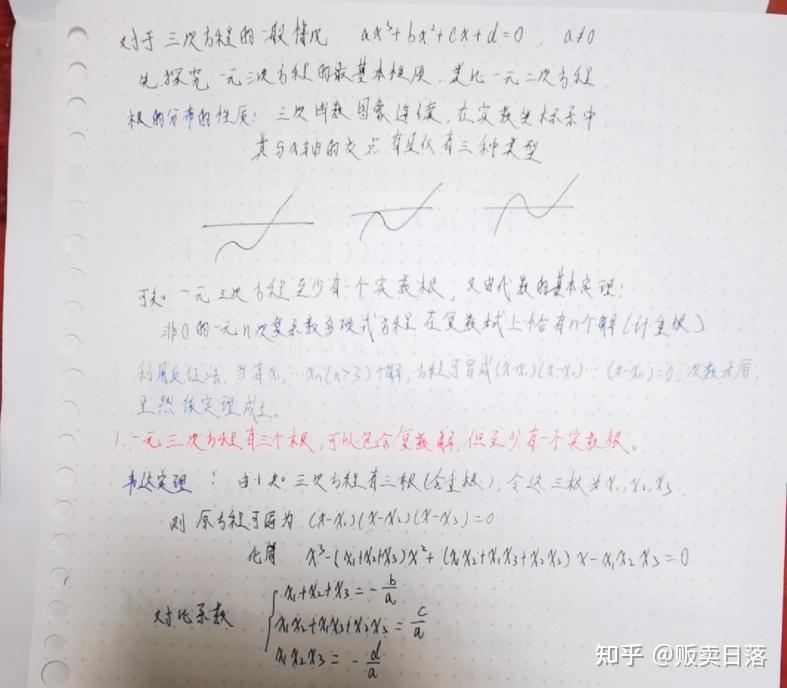 对于三次方程的一般情况 ax³+bx²+cx+d=0, a≠0
先探究一元三次方程的最基本性质,类比一元二次方程
根的分布的性质:三次函数图象连续,在实数坐标系中
其与x轴的交点有且仅有三种类型
可知一元三次方程至少有一个实数根,又由代数的基本定理:
非0的一元n次复系数多项式方程在复数域上恰有n个解(计重根)
利用反证法,当有x₁,…xₙ(n>3)个解,方程可写成(x-x₁)(x-x₂)…(x-xₙ)=0,次数矛盾,
显然该定理成立。
1.一元三次方程有三个根,可以包含复数解,但至少有一个实数根。
韦达定理:由1知三次方程有三根(含重根),令这三根为x₁,x₂,x₃
则原方程可写为 (x-x₁)(x-x₂)(x-x₃)=0
化简 x³-(x₁+x₂+x₃)x²+(x₁x₂+x₁x₃+x₂x₃)x-x₁x₂x₃=0
x₁+x₂+x₃=-b/a
对比系数 x₁x₂+x₁x₃+x₂x₃=c/a
x₁x₂x₃=-d/a
知乎 @贩卖日落